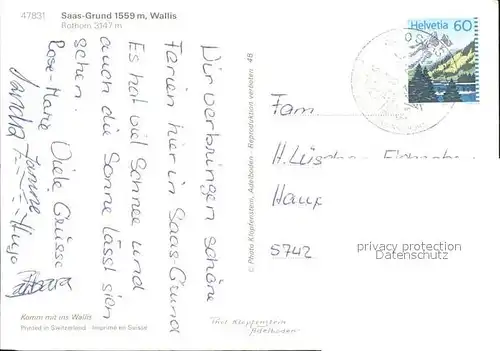 47831
Saas-Grund 1559 m, Wallis
Rothorn 3147 m
Wir verbringen schöne
Ferien hier in Saas Grund
Es hat viel Schnee und
auch die Sonne lässt sich
sehen. Viele Grüsse
Rose-Marie
Sandra Janine
Hugo
Komm mit ins Wallis
Printed in Switzerland - Imprimé en Suisse
© Photo Klopfenstein, Adelboden - Reproduktion verboten 48
Photo Klopfenstein
Adelboden
Helvetia 60
Fam.
H. Lüscher
5742
privacy protection
Datenschutz